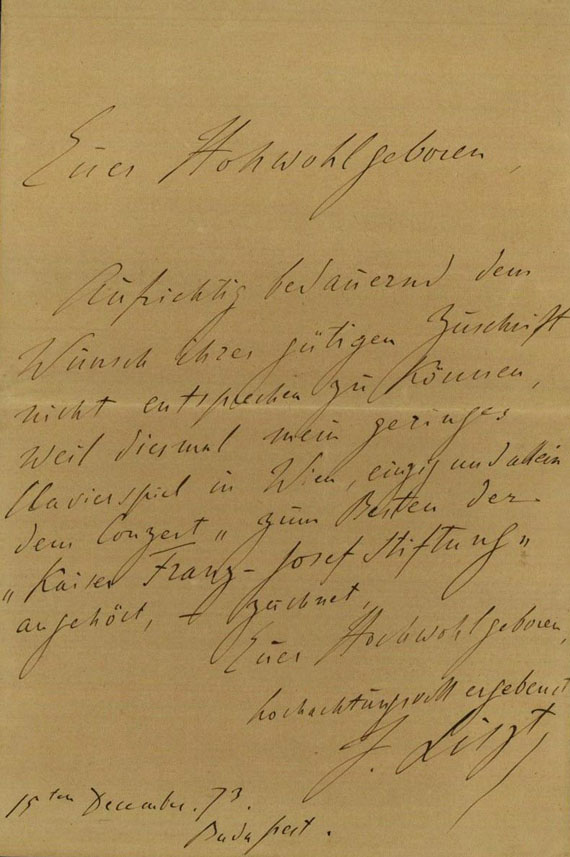 Euer Hohwohlgeboren,
Aufrichtig bedauernd dem
Wunsch ihres gütigen Zuschrift
nicht entsprechen zu können,
weil diesmal mein geringes
Clavierspiel in Wien, einzig und allein
dem Conzert „ zum Besten der
„Kaiser Franz-Josef Stiftung"
angehört, – zeichnet,
Euer Hochwohlgeboren,
hochachtungsvoll ergebenst
F. Liszt
15ten December. 73.
Budapest.